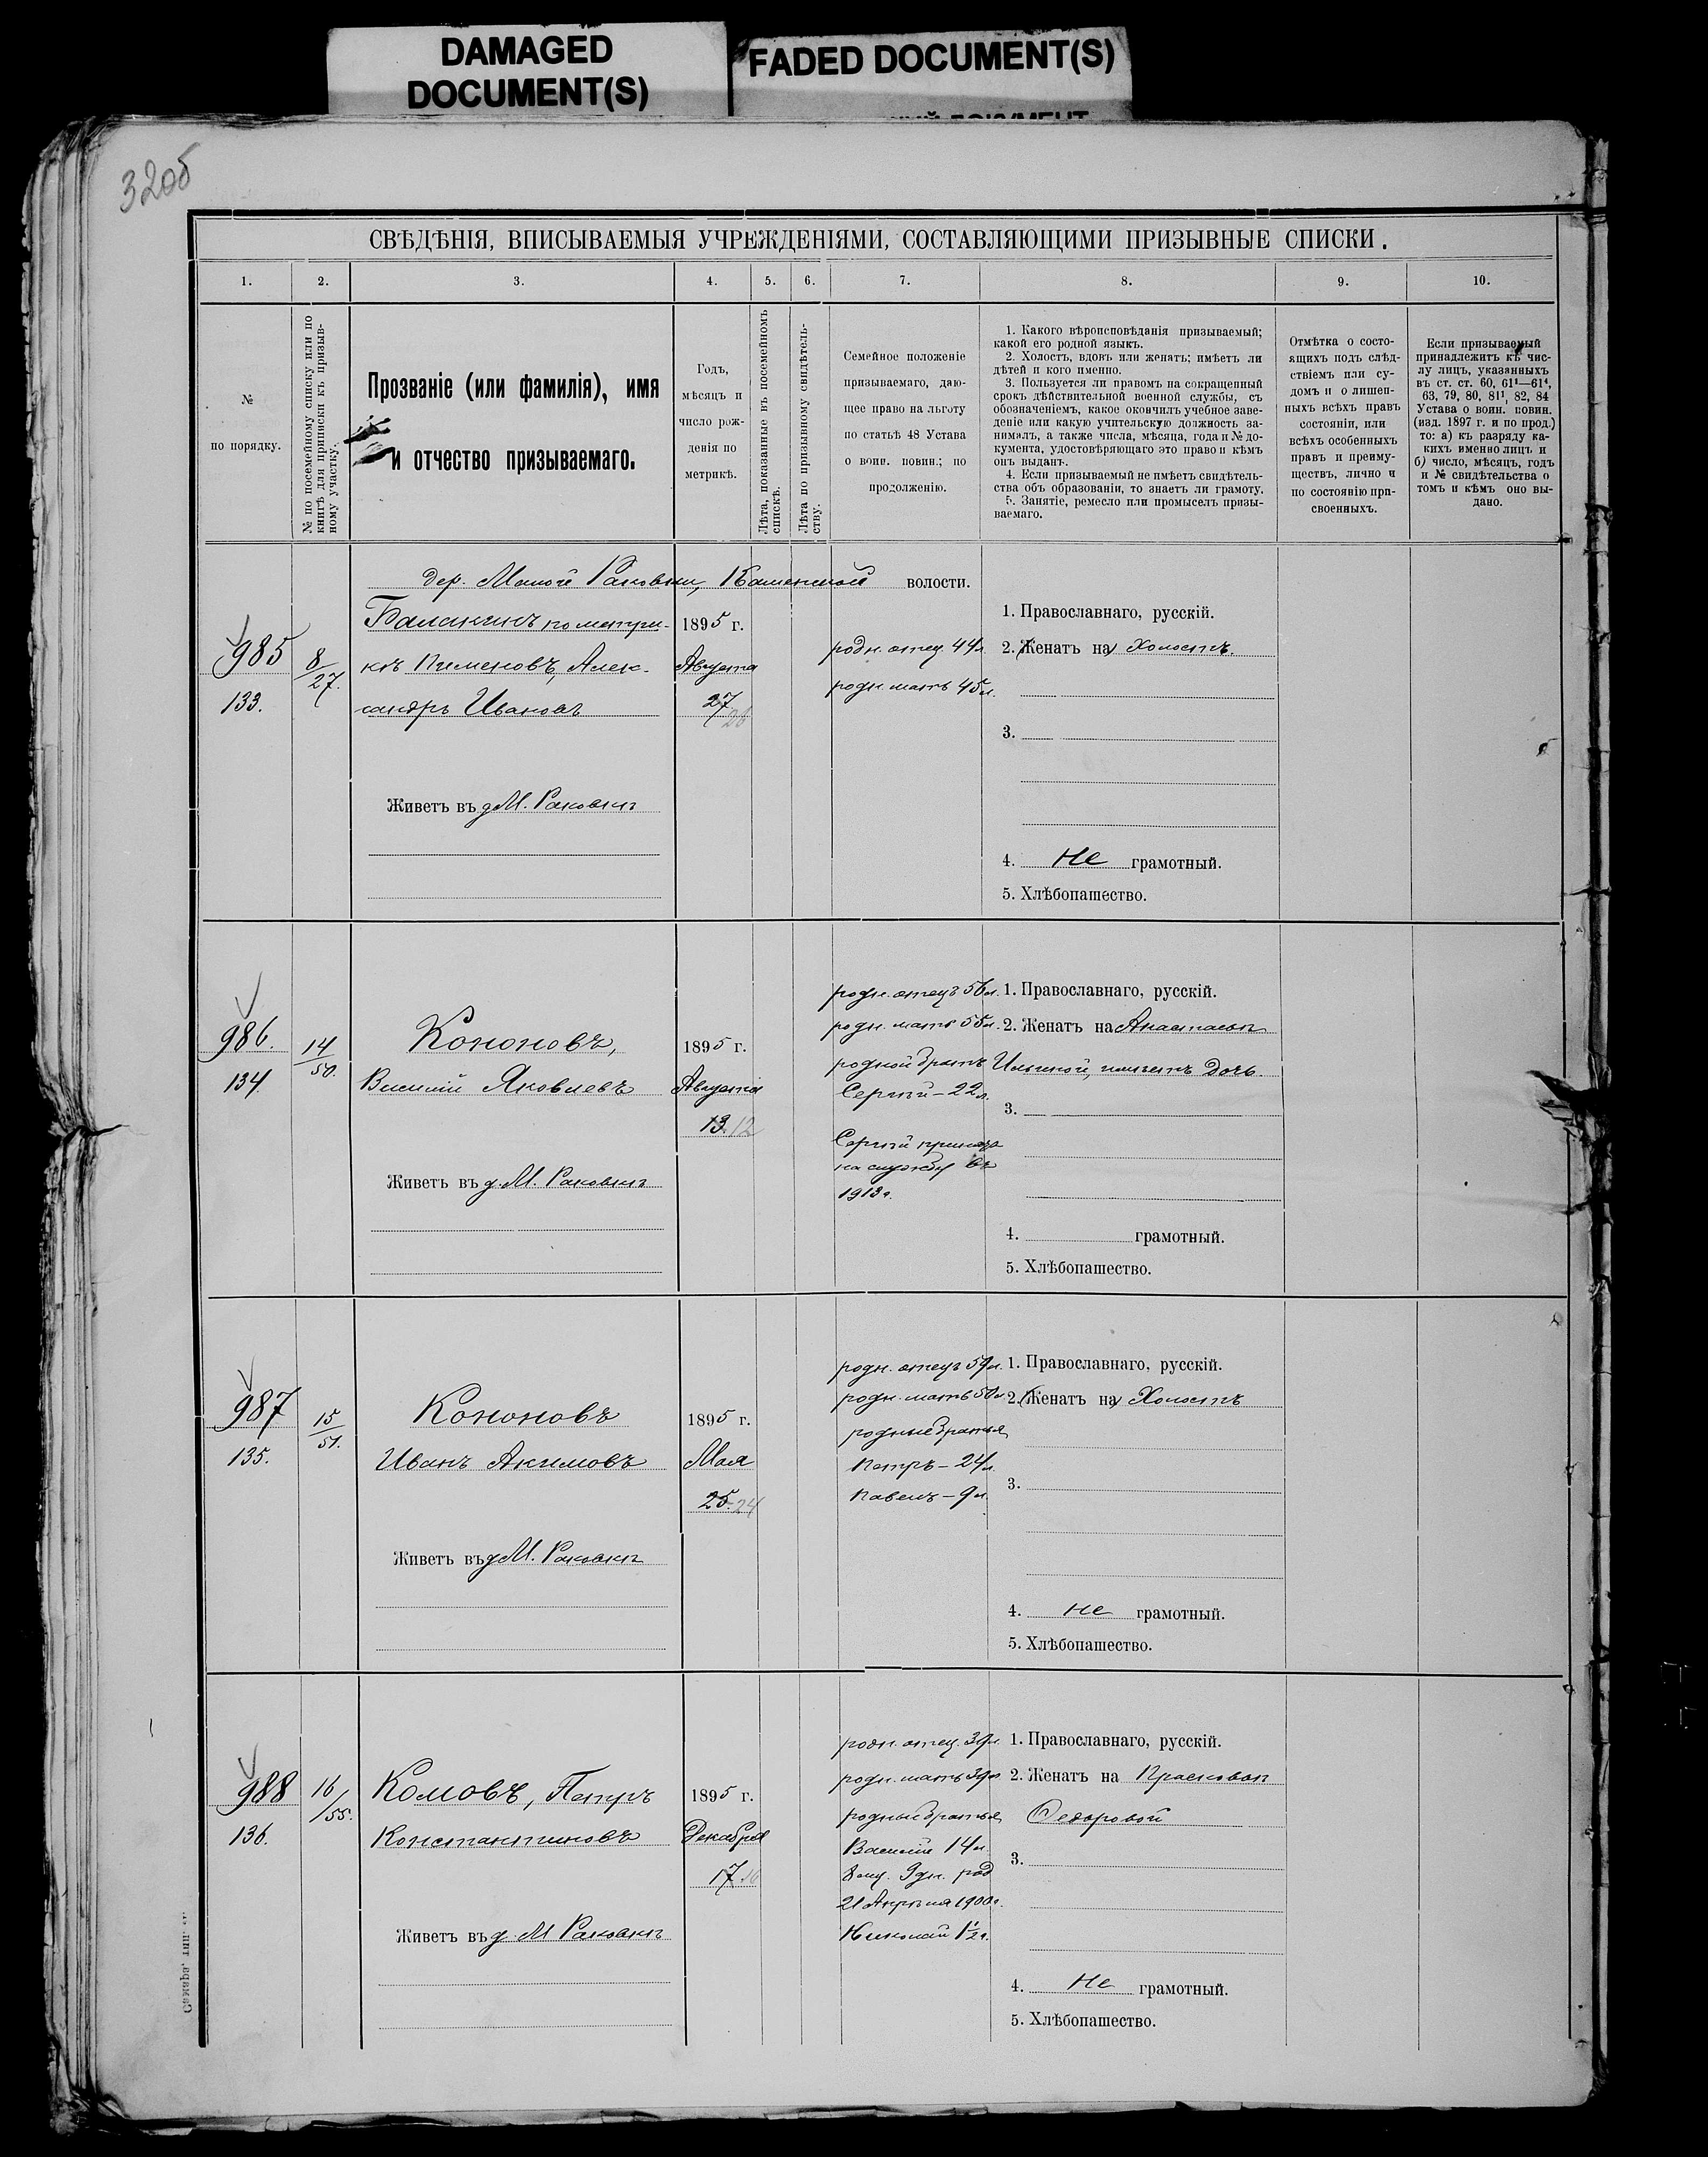 DAMAGED
DOCUMENT(S)
FADED DOCUMENT(S)
320б
СВѢДѢНІЯ, ВПИСЫВАЕМЫЯ УЧРЕЖДЕНІЯМИ, СОСТАВЛЯЮЩИМИ ПРИЗЫВНЫЕ СПИСКИ.
1. 2. 3. 4. 5. 6. 7. 8. 9. 10.
№
по порядку.
№ по посемейному списку или по
книгѣ для приписки къ призыв-
ному участку.
Прозваніе (или фамилія), имя
и отчество призываемаго.
Годъ,
мѣсяцъ и
число рож-
денія по
метрикѣ.
Лѣта, показанные въ посемейномъ
спискѣ.
Лѣта по призывному свидѣтель-
ству.
Семейное положеніе
призываемаго, даю-
щее право на льготу
по статьѣ 48 Устава
о воин. повин.; по
продолженію.
1. Какого вѣроисповѣданія призываемый;
какой его родной языкъ.
2. Холостъ, вдовъ или женатъ; имѣетъ ли
дѣтей и кого именно.
3. Пользуется ли правомъ на сокращенный
срокъ дѣйствительной военной службы, съ
обозначеніемъ, какое окончилъ учебное заве-
деніе или какую учительскую должность за-
нималъ, а также числа, мѣсяца, года и № до-
кумента, удостовѣряющаго это право и кѣмъ
онъ выданъ.
4. Если призываемый не имѣетъ свидѣтель-
ства объ образованіи, то знаетъ ли грамоту.
5. Занятіе, ремесло или промыселъ призы-
ваемаго.
Отмѣтка о состо-
ящихъ подъ слѣд-
ствіемъ или су-
домъ и о лишен-
ныхъ всѣхъ правъ
состоянія, или
всѣхъ особенныхъ
правъ и преиму-
ществъ, лично и
по состоянію при-
своенныхъ.
Если призываемый
принадлежитъ къ чис-
лу лицъ, указанныхъ
въ ст. ст. 60, 61¹—61⁴,
63, 79, 80, 81¹, 82, 84
Устава о воин. повин.
(изд. 1897 г. и по прод.)
то: а) къ разряду ка-
кихъ именно лицъ и
б) число, мѣсяцъ, годъ
и № свидѣтельства о
томъ и кѣмъ оно вы-
дано.
дер. Малой Раковки, Каменской волости.
985
133.
8/27.
Балакинъ по метри-
кѣ Пименовъ, Алек-
сандръ Ивановъ
Живетъ въ д М. Раковкѣ
1895 г.
Августа
27
26
родн. отец 44л
родн. мать 45л.
1. Православнаго, русскій.
2. (Женатъ на) Холостъ.
3.
4. Не грамотный.
5. Хлѣбопашество.
986.
134.
14/50.
Кононовъ,
Василій Яковлевъ
Живетъ въ д. М. Раковкѣ
1895 г.
Августа
13. 12
родн. отецъ 56л.
родн. мать 55л.
родной братъ
Сергѣй — 22л.
Сергѣй принятъ
на службу въ
1913г.
1. Православнаго, русскій.
2. Женатъ на Анастасіи
Ильиной, имѣетъ дочь.
3.
4. грамотный.
5. Хлѣбопашество.
987
135.
15/51.
Кононовъ
Иванъ Акимовъ
Живетъ въ д М. Раковкѣ
1895 г.
Мая
25. 24
родн. отецъ 59л.
родн. мать 50л.
родные братья
Петръ — 24л.
Павелъ — 9л.
1. Православнаго, русскій.
2. (Женатъ на) Холостъ
3.
4. Не грамотный.
5. Хлѣбопашество.
988
136.
16/55.
Комовъ, Петръ
Константиновъ
Живетъ въ д. М Раковкѣ
1895 г.
Декабря
17 16
родн. отец. 39л.
родн. мать 39л
родные братья
Василій 14л.
8 мц. 9 дн. род
21 Апрѣля 1900г.
Николай 1½г.
1. Православнаго, русскій.
2. Женатъ на Прасковьи
Федоровой
3.
4. Не грамотный.
5. Хлѣбопашество.